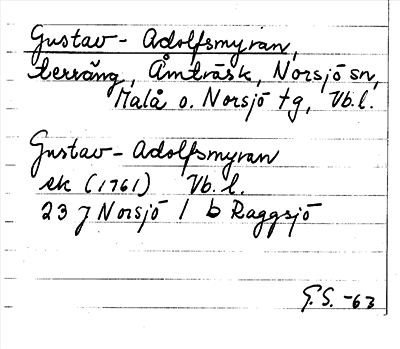 Gustav-Adolfsmyran,
terräng, Åmträsk, Norsjö sn,
Malå o. Norsjö tg, Vb.l.
Gustav-Adolfsmyran
sk (1761) Vb.l.
23 J Norsjö / b Raggsjö
G.S. -63